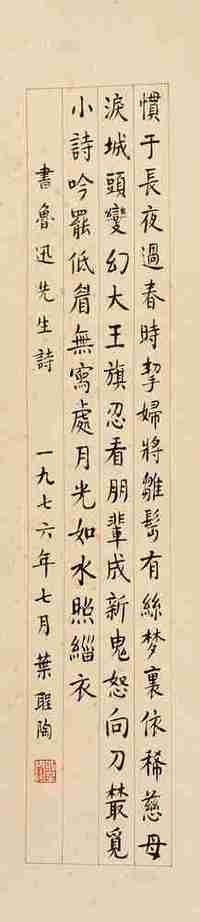 慣于長夜過春時挈婦將雛鬢有絲梦裏依稀慈母
淚城頭變幻大王旗忍看朋輩成新鬼怒向刀叢覓
小詩吟罷低眉無寫處月光如水照緇衣
書魯迅先生詩 一九七六年七月 葉聖陶